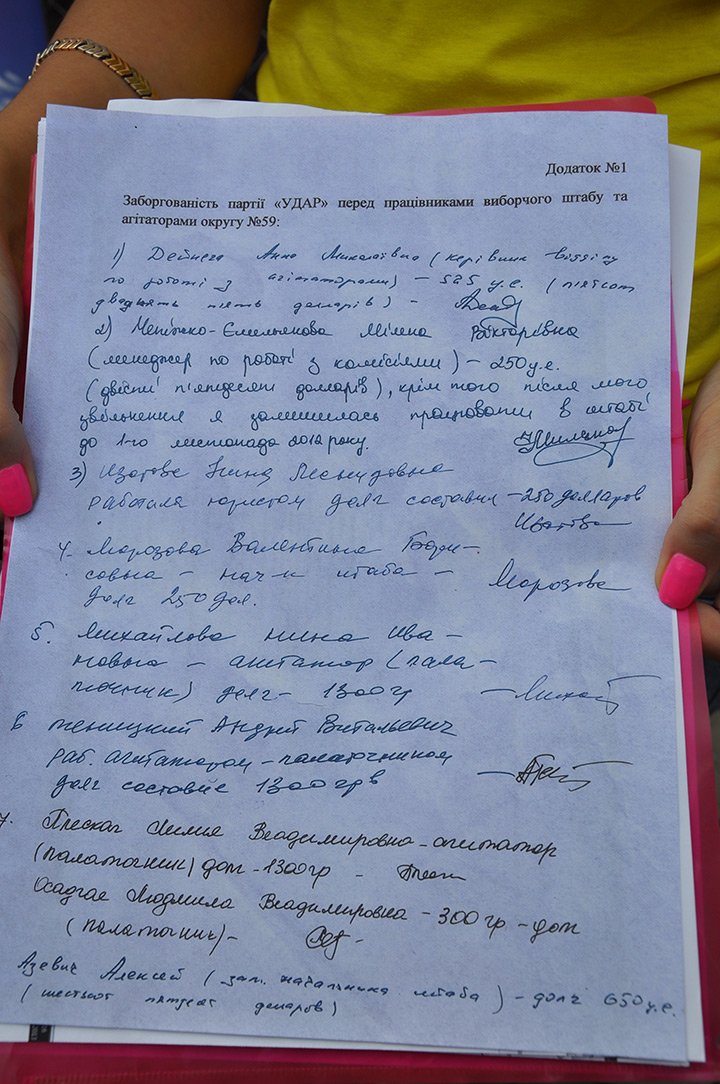 Додаток №1
Заборгованість партії «УДАР» перед працівниками виборчого штабу та
агітаторами округу №59:
1) Дейнега Анна Миколаївна (керівник відділу
по роботі з агітаторами) – 525 у.е. (пятсот
двадцять пять доларів) –
2) Меніжко-Ємельянова Мілена Вікторівна
(менеджер по роботі з комісіями) – 250 у.е.
(двісті п'ятдесят долларів), крім того після мого
звільнення я залишилась працювати в штабі
до 1-го листопада 2012 року.
3) Изотова Нина Леонидовна
работала юристом долг составил – 250 долларов
4. Морозова Валентина Бори-
совна – нач-к штаба – Морозова
долг 250 дол.
5. Михайлова Нина Ива-
новна – агитатор (пала-
точник) долг – 1300 гр –
6 Теницкий Андрій Витальевич
раб. агитатором – палаточником
долг составил 1300 грв –
7. Плескач Лилия Владимировна – агитатор
(палаточник) долг – 1300 гр –
Осадчая Людмила Владимировна – 300 гр – долг
(палаточник) –
Азевич Алексей (зам. начальника штаба) – долг 650 у.е.
(шестьсот пятдесят доларов)